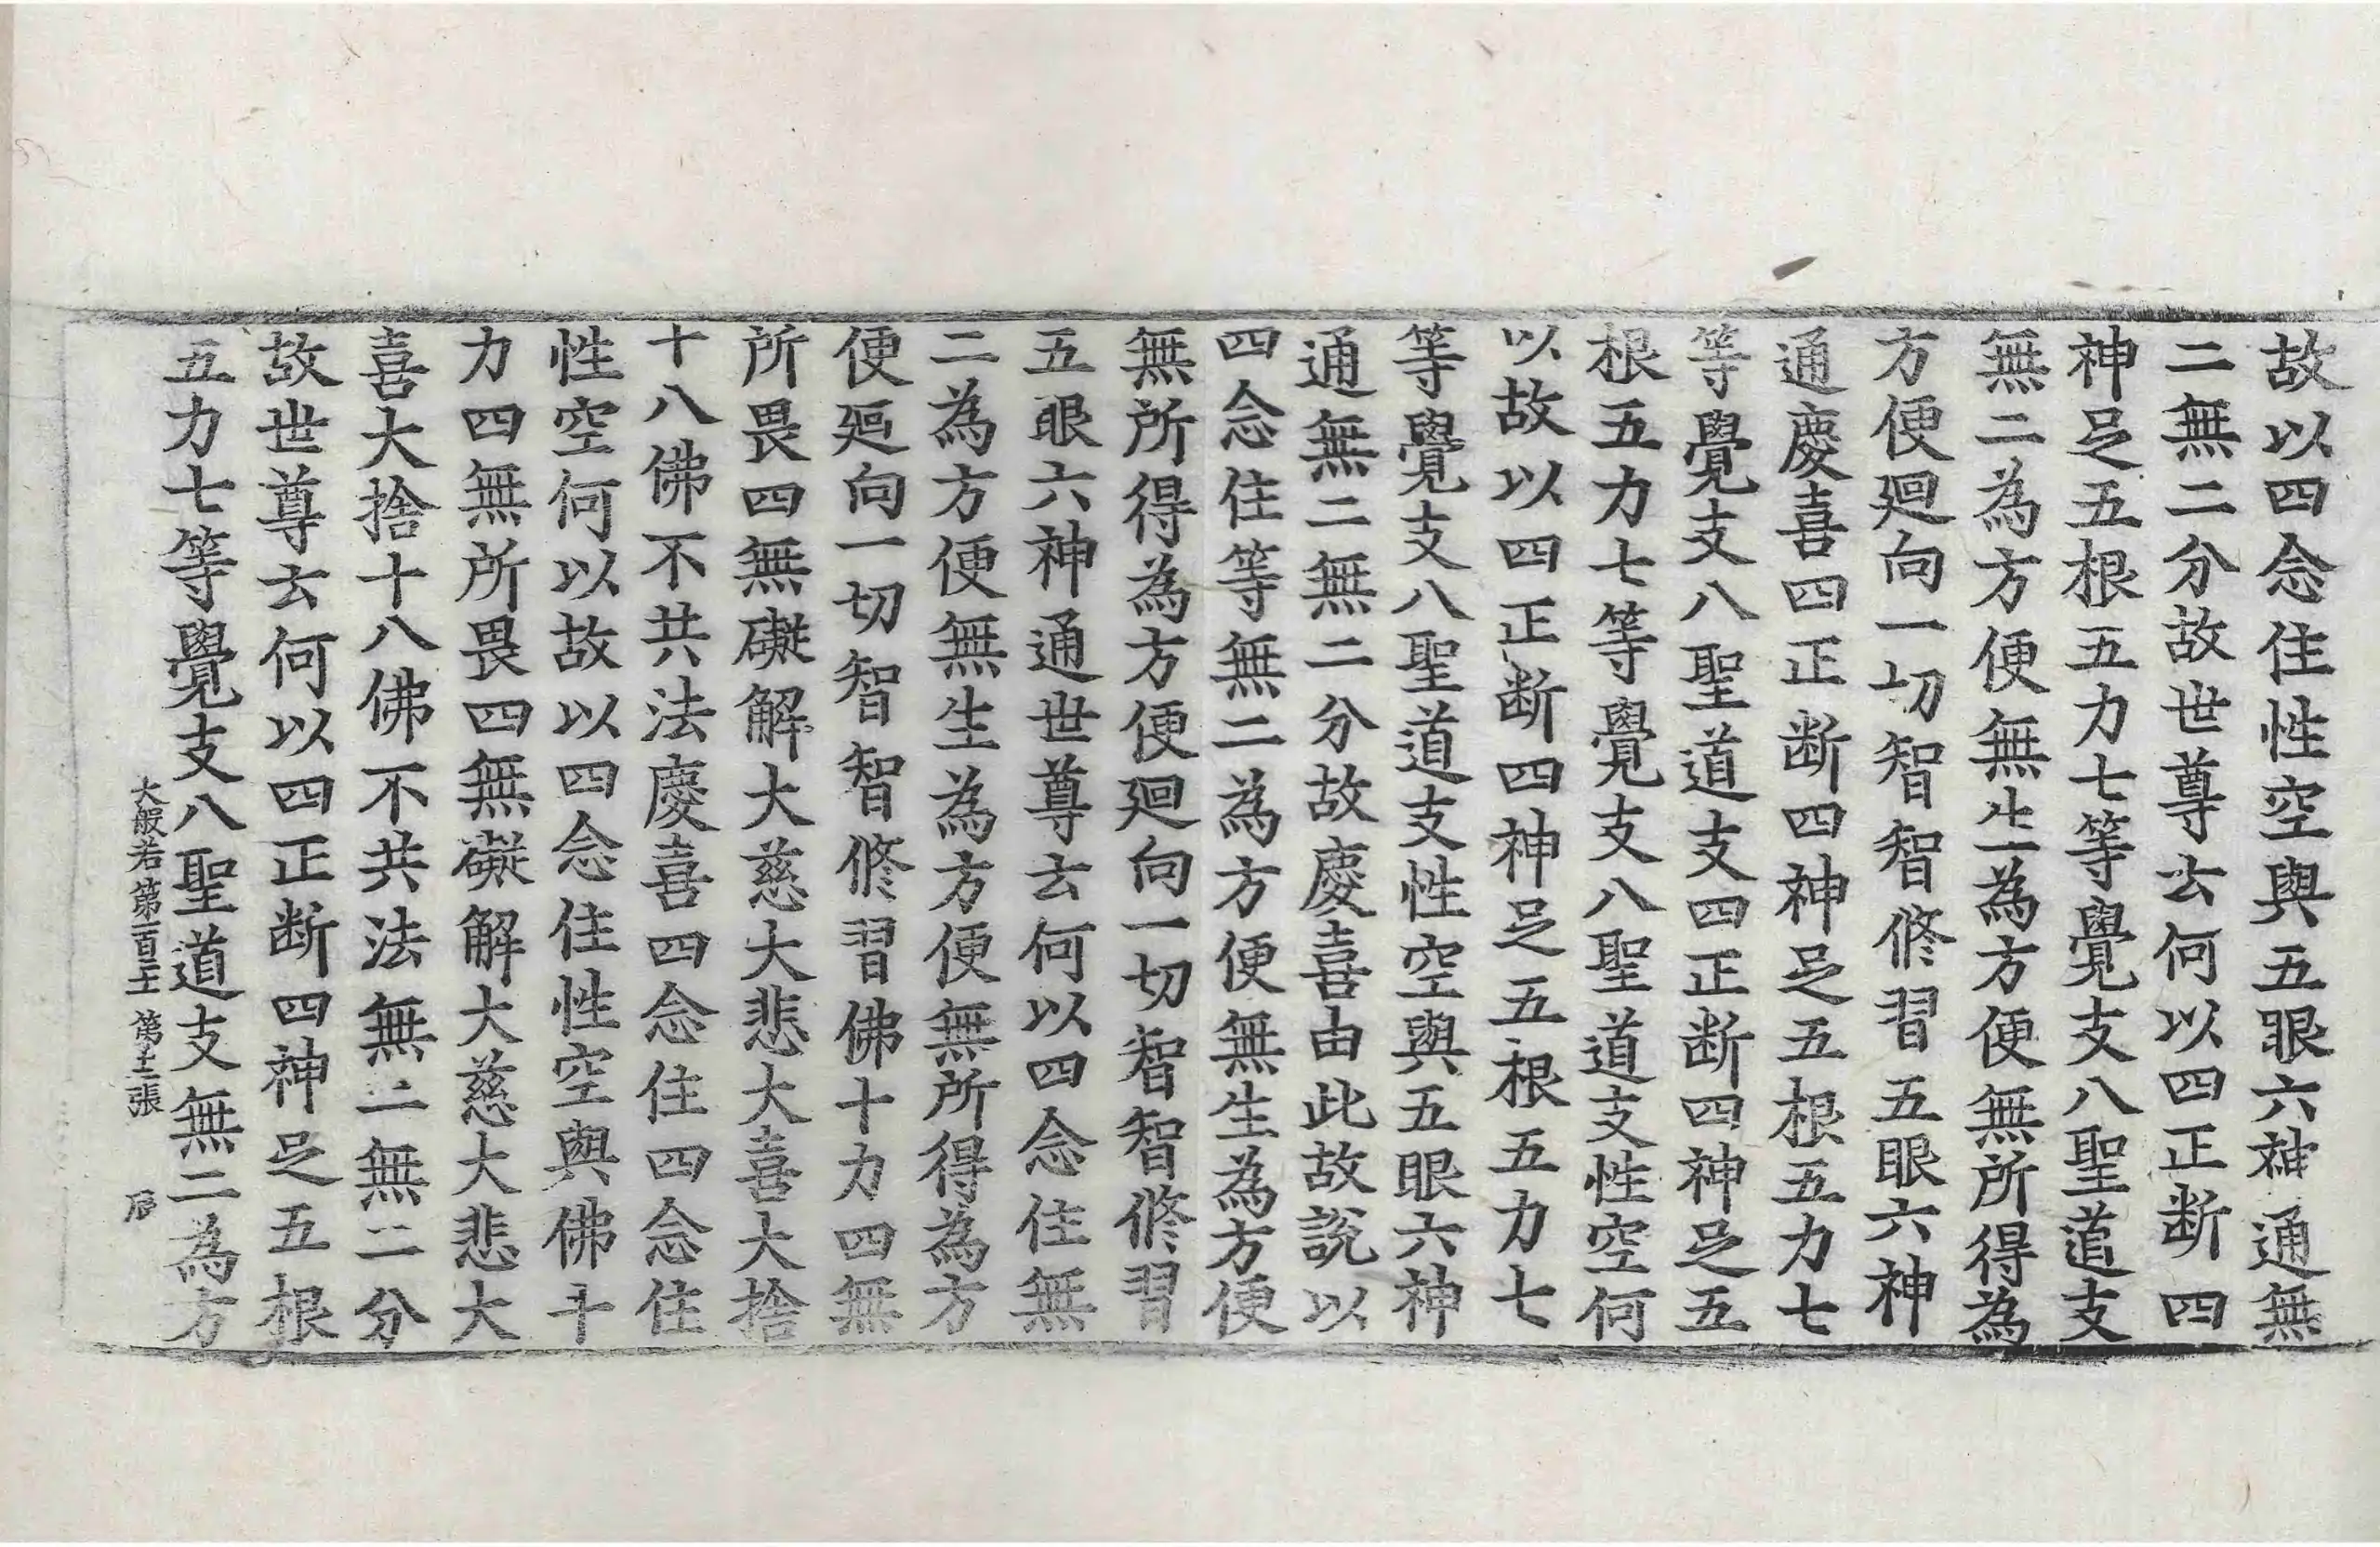 故以四念住性空與五眼六神通無
二無二分故世尊云何以四正断四
神足五根五力七等覺支八聖道支
無二為方便無生為方便無所得為
方便廻向一切智智修習五眼六神
通慶喜四正断四神足五根五力七
等覺支八聖道支四正断四神足五
根五力七等覺支八聖道支性空何
以故以四正断四神足五根五力七
等覺支八聖道支性空與五眼六神
通無二無二分故慶喜由此故說以
四念住等無二為方便無生為方便
無所得為方便廻向一切智智修習
五眼六神通世尊云何以四念住無
二為方便無生為方便無所得為方
便廻向一切智智修習佛十力四無
所畏四無礙解大慈大悲大喜大捨
十八佛不共法慶喜四念住四念住
性空何以故以四念住性空與佛十
力四無所畏四無礙解大慈大悲大
喜大捨十八佛不共法無二無二分
故世尊云何以四正断四神足五根
五力七等覺支八聖道支無二為方
大般若第一百